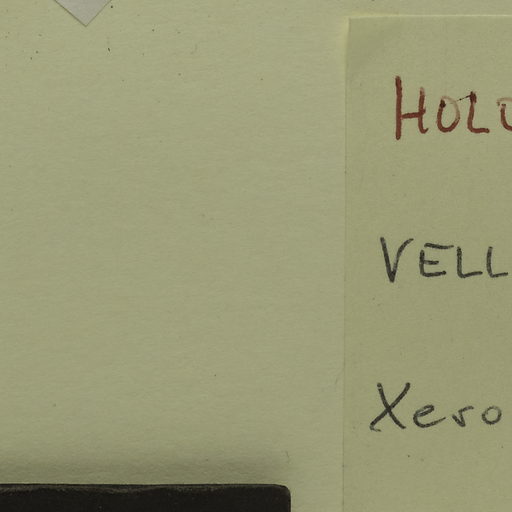 HOLO
VELL
Xero